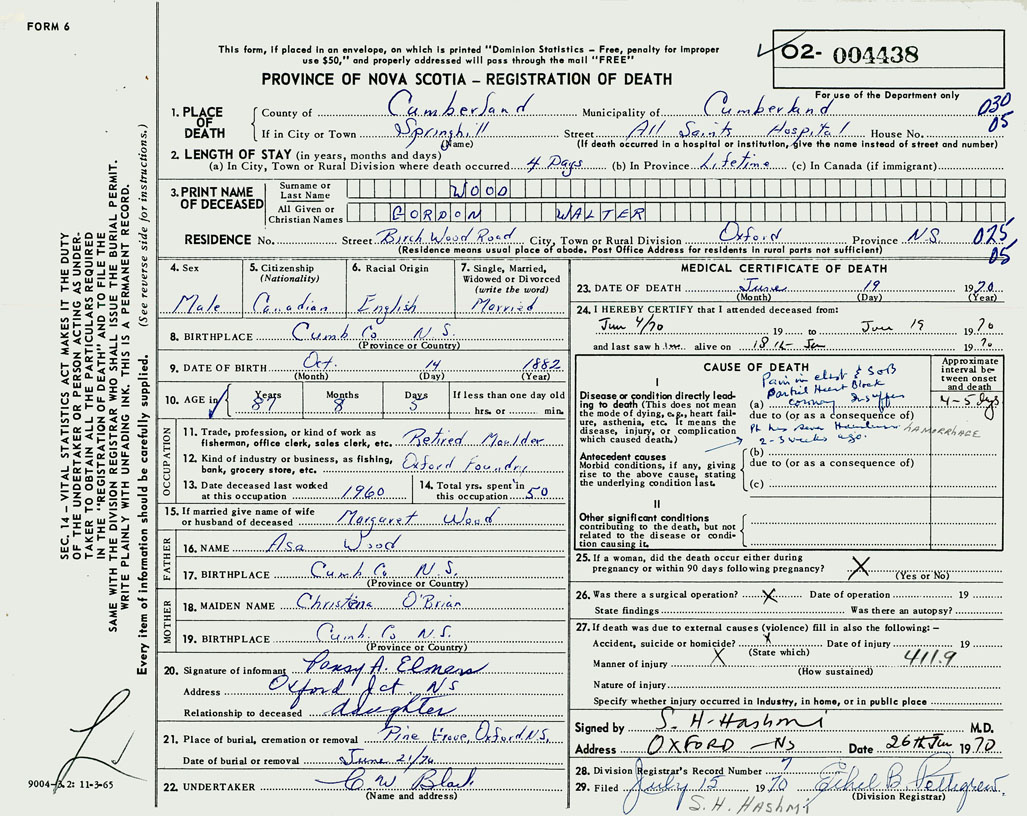 FORM 6
This form, if placed in an envelope, on which is printed "Dominion Statistics – Free, penalty for improper
use $50," and properly addressed will pass through the mail "FREE"
PROVINCE OF NOVA SCOTIA – REGISTRATION OF DEATH
02- 004438
For use of the Department only
1. PLACE OF DEATH County of Cumberland Municipality of Cumberland 030
If in City or Town Springhill Street All Saints Hospital House No. 05
(Name) (If death occurred in a hospital or institution, give the name instead of street and number)
2. LENGTH OF STAY (in years, months and days)
(a) In City, Town or Rural Division where death occurred 4 Days (b) In Province Lifetime (c) In Canada (if immigrant)
3. PRINT NAME OF DECEASED Surname or Last Name WOOD
All Given or Christian Names GORDON WALTER
RESIDENCE No. Street Birch Wood Road City, Town or Rural Division Oxford Province N.S. 025
(Residence means usual place of abode. Post Office Address for residents in rural parts not sufficient) 05
4. Sex Male
5. Citizenship (Nationality) Canadian
6. Racial Origin English
7. Single, Married, Widowed or Divorced (write the word) Married
8. BIRTHPLACE Cumb Co N.S.
(Province or Country)
9. DATE OF BIRTH Oct. 14 1882
(Month) (Day) (Year)
10. AGE in Years 87 Months 8 Days 5 If less than one day old
hrs. or min.
OCCUPATION
11. Trade, profession, or kind of work as
fisherman, office clerk, sales clerk, etc. Retired Moulder
12. Kind of industry or business, as fishing,
bank, grocery store, etc. Oxford Foundry
13. Date deceased last worked at this occupation 1960
14. Total yrs. spent in this occupation 50
15. If married give name of wife
or husband of deceased Margaret Wood
FATHER
16. NAME Asa Wood
17. BIRTHPLACE Cumb Co N.S.
(Province or Country)
MOTHER
18. MAIDEN NAME Christena O'Brian
19. BIRTHPLACE Cumb. Co N.S.
(Province or Country)
20. Signature of informant Pansy A. Elmers
Address Oxford Jct. NS
Relationship to deceased daughter
21. Place of burial, cremation or removal Pine Grove, Oxford N.S.
Date of burial or removal June 21/70
22. UNDERTAKER C. W. Black
(Name and address)
MEDICAL CERTIFICATE OF DEATH
23. DATE OF DEATH June 19 1970
(Month) (Day) (Year)
24. I HEREBY CERTIFY that I attended deceased from:
Jun 4/70 19 to Jun 19 1970
and last saw him alive on 18th Jun 1970
CAUSE OF DEATH
Approximate interval between onset and death
I
Disease or condition directly leading to death (This does not mean the mode of dying, e.g., heart failure, asthenia, etc. It means the disease, injury, or complication which caused death.)
Pain in chest & SOB
Partial Heart Block
(a) coronary insuff 4-5 dys
due to (or as a consequence of)
HAMORRHAGE
2-3 weeks ago.
Antecedent causes
Morbid conditions, if any, giving rise to the above cause, stating the underlying condition last.
(b)
due to (or as a consequence of)
(c)
II
Other significant conditions
contributing to the death, but not related to the disease or condition causing it.
25. If a woman, did the death occur either during
pregnancy or within 90 days following pregnancy? X
(Yes or No)
26. Was there a surgical operation? X Date of operation 19
State findings Was there an autopsy?
27. If death was due to external causes (violence) fill in also the following: –
Accident, suicide or homicide? X Date of injury 19
(State which)
Manner of injury X 411.9
(How sustained)
Nature of injury
Specify whether injury occurred in Industry, in home, or in public place
Signed by S. H. Hashmi M.D.
Address OXFORD – NS Date 26th Jun 1970
28. Division Registrar's Record Number 7
29. Filed July 15 1970 Ethel B. Pettigrew
(Division Registrar)
S.H. HASHMI
SEC. 14 – VITAL STATISTICS ACT MAKES IT THE DUTY
OF THE UNDERTAKER OR PERSON ACTING AS UNDER-
TAKER TO OBTAIN ALL THE PARTICULARS REQUIRED
IN THE "REGISTRATION OF DEATH" AND TO FILE THE
SAME WITH THE DIVISION REGISTRAR WHO SHALL ISSUE THE BURIAL PERMIT.
WRITE PLAINLY WITH UNFADING INK. THIS IS A PERMANENT RECORD.
Every item of information should be carefully supplied. (See reverse side for instructions.)
9004-3.2: 11-3-65